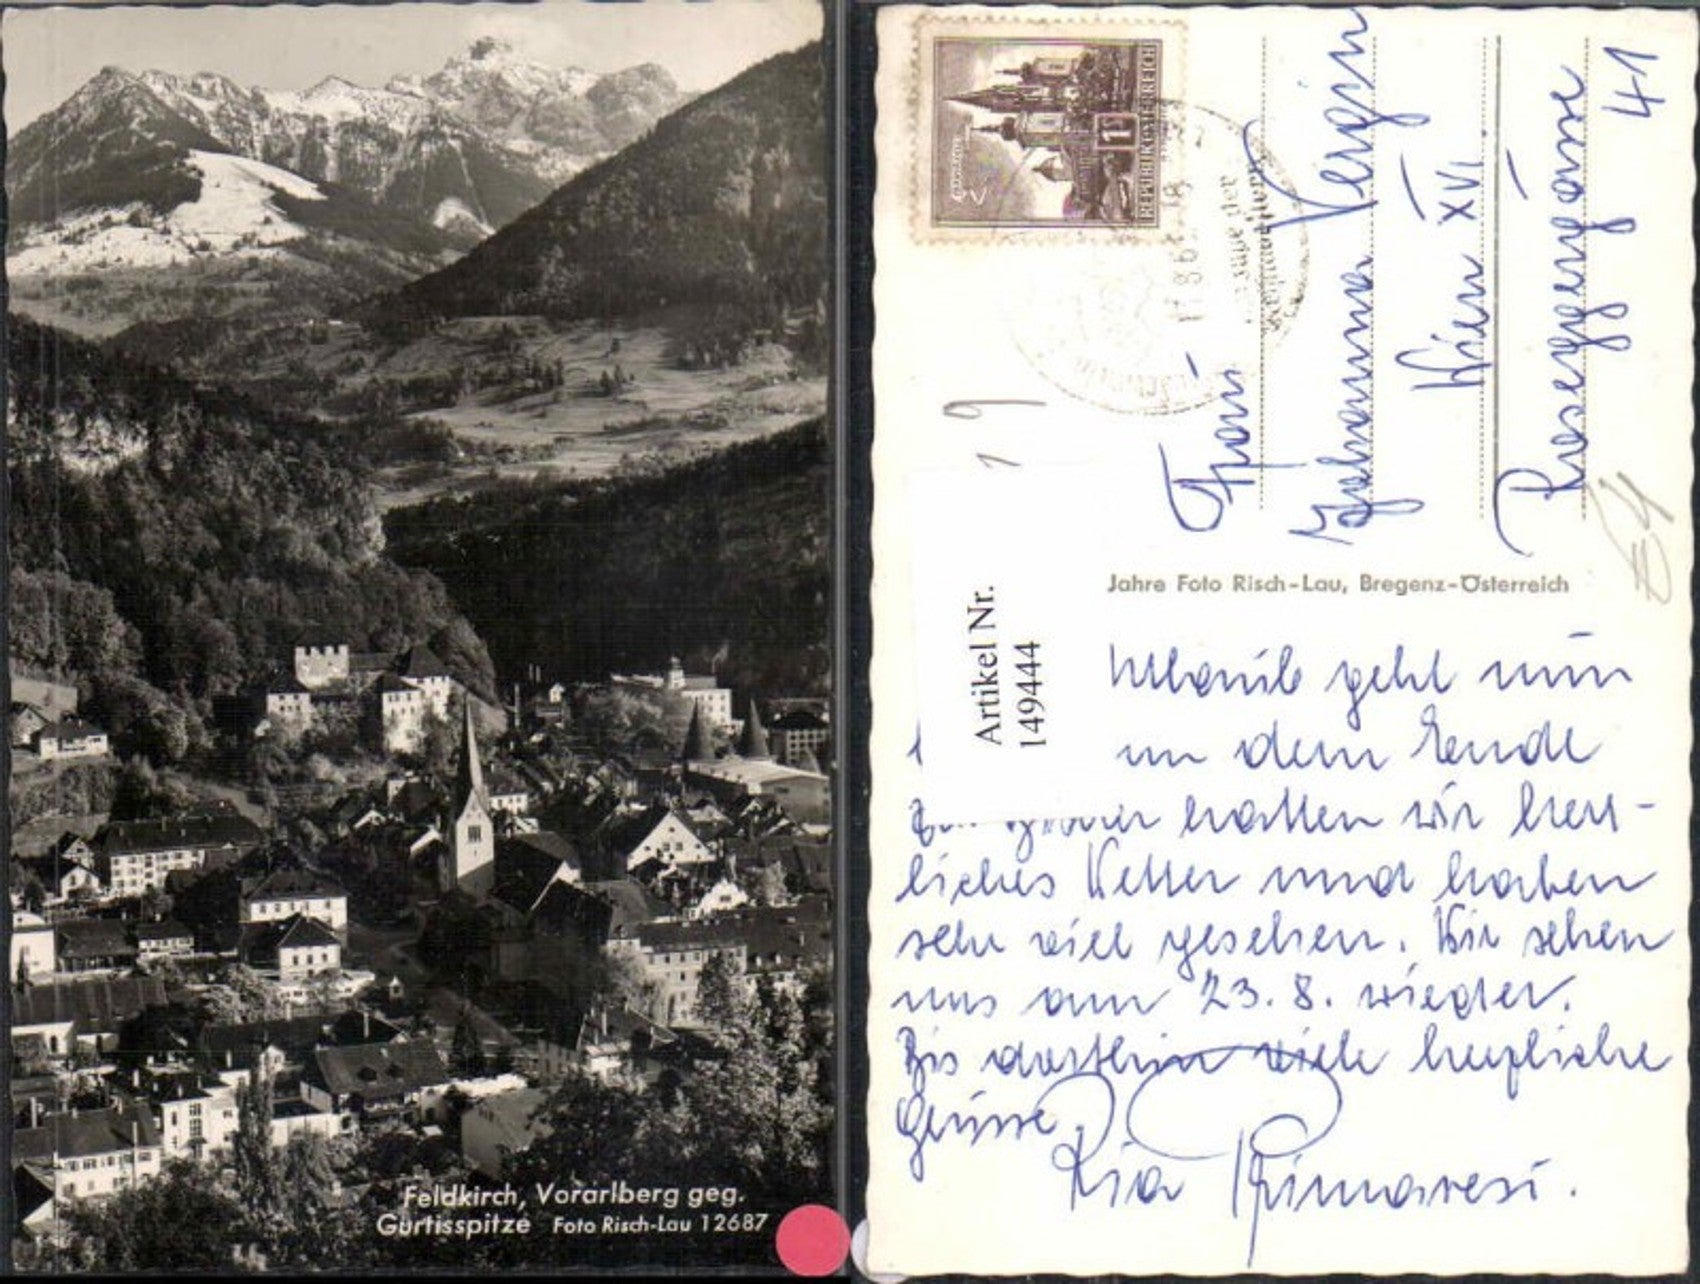 Feldkirch, Vorarlberg geg.
Gurtisspitze Foto Risch-Lau 12687
REPUBLIK ÖSTERREICH
1
17.8.63-18
Frau
Johanna
Wien XVI
Roseggergasse
41
19
Artikel Nr.
149444
Jahre Foto Risch-Lau, Bregenz-Österreich
Urlaub geht nun
dem Ende
zu. hatten wir herr-
liches Wetter und haben
sehr viel gesehen. Wir sehen
uns am 23.8. wieder.
Bis dorthin viele herzliche
Grüsse
Ria